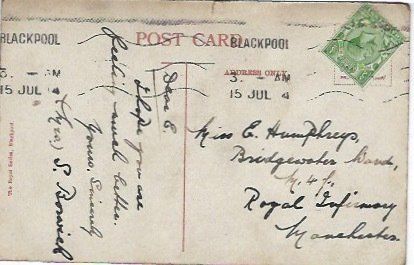 BLACKPOOL
3. - AM
15 JUL 4
POST CARD.
BLACKPOOL
3. - AM
15 JUL 4
ADDRESS ONLY
Dear E.
I hope you are
feeling much better.
Yours Sincerely
(Mrs) S. Borwick
The Royal Series, Blackpool.
Miss E. Humphreys,
Bridgewater Ward,
Royal Infirmary
Manchester.